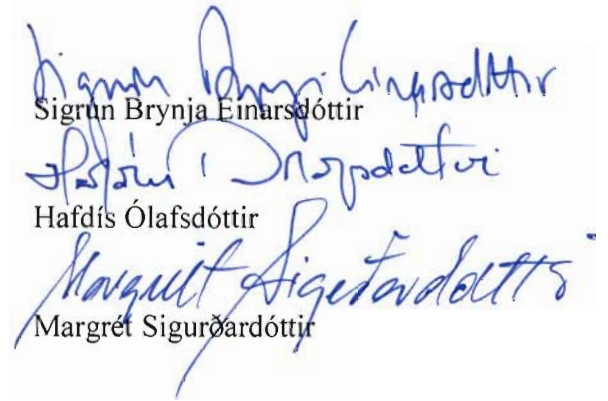 Sigrún Brynja Einarsdóttir
Sigrún Brynja Einarsdóttir
Hafdís Ólafsdóttir
Hafdís Ólafsdóttir
Margrét Sigurðardóttir
Margrét Sigurðardóttir